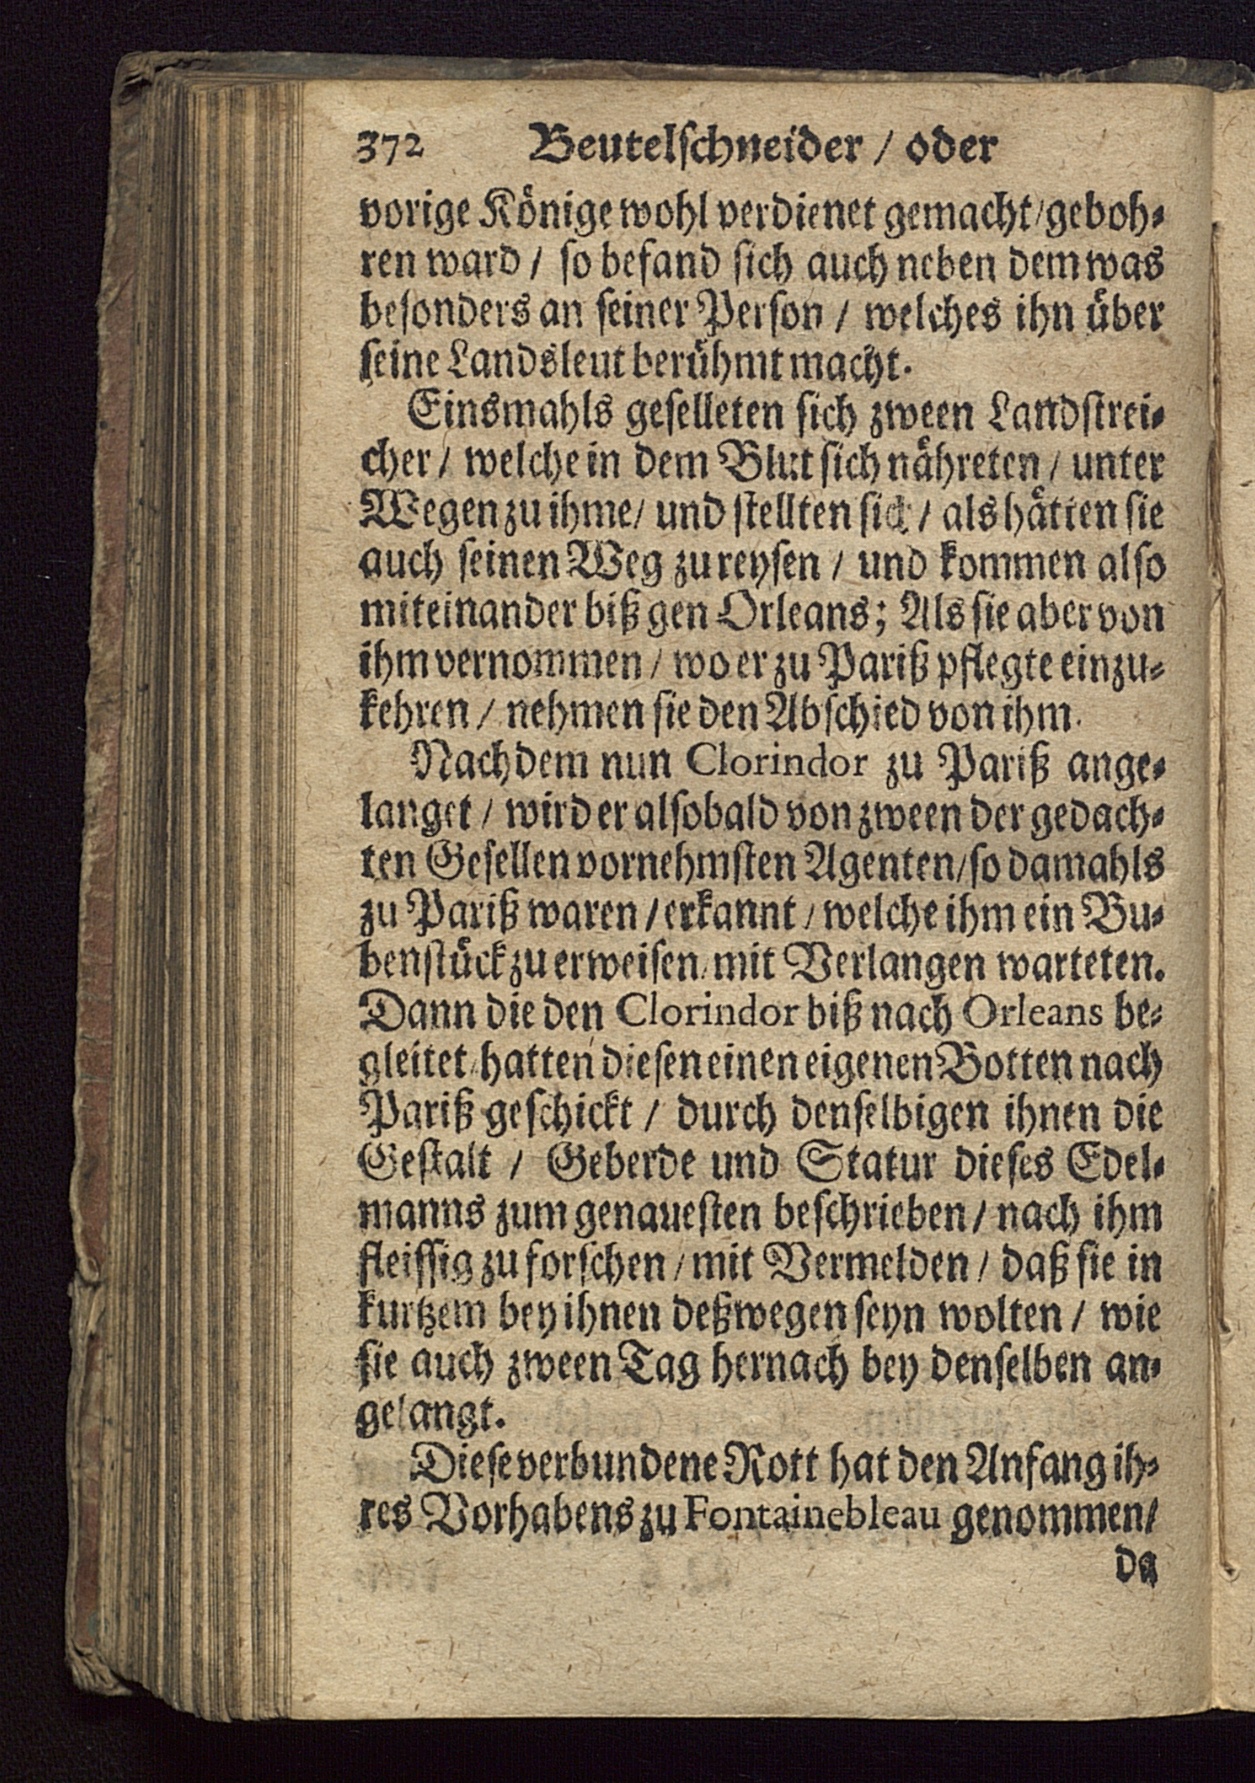 372 Beutelschneider / oder
vorige Könige wohl verdienet gemacht / geboh⸗
ren ward / so befand sich auch neben dem was
besonders an seiner Person / welches ihn über
seine Landsleut berühmt macht.
Einsmahls geselleten sich zween Landstrei⸗
cher / welche in dem Blut sich nähreten / unter
Wegen zu ihme / und stellten sich / als hätten sie
auch seinen Weg zu reysen / und kommen also
miteinander biß gen Orleans; Als sie aber von
ihm vernommen / wo er zu Pariß pflegte einzu⸗
kehren / nehmen sie den Abschied von ihm.
Nachdem nun Clorindor zu Pariß ange⸗
langet / wird er alsobald von zween der gedach⸗
ten Gesellen vornehmsten Agenten / so damahls
zu Pariß waren / erkannt / welche ihm ein Bu⸗
benstück zu erweisen / mit Verlangen warteten.
Dann die den Clorindor biß nach Orleans be⸗
gleitet / hatten diesen einen eigenen Botten nach
Pariß geschickt / durch denselbigen ihnen die
Gestalt / Geberde und Statur dieses Edel⸗
manns zum genauesten beschrieben / nach ihm
fleissig zu forschen / mit Vermelden / daß sie in
kurtzem bey ihnen deßwegen seyn wolten / wie
sie auch zween Tag hernach bey denselben an⸗
gelangt.
Diese verbundene Rott hat den Anfang ih⸗
res Vorhabens zu Fontainebleau genommen /
da